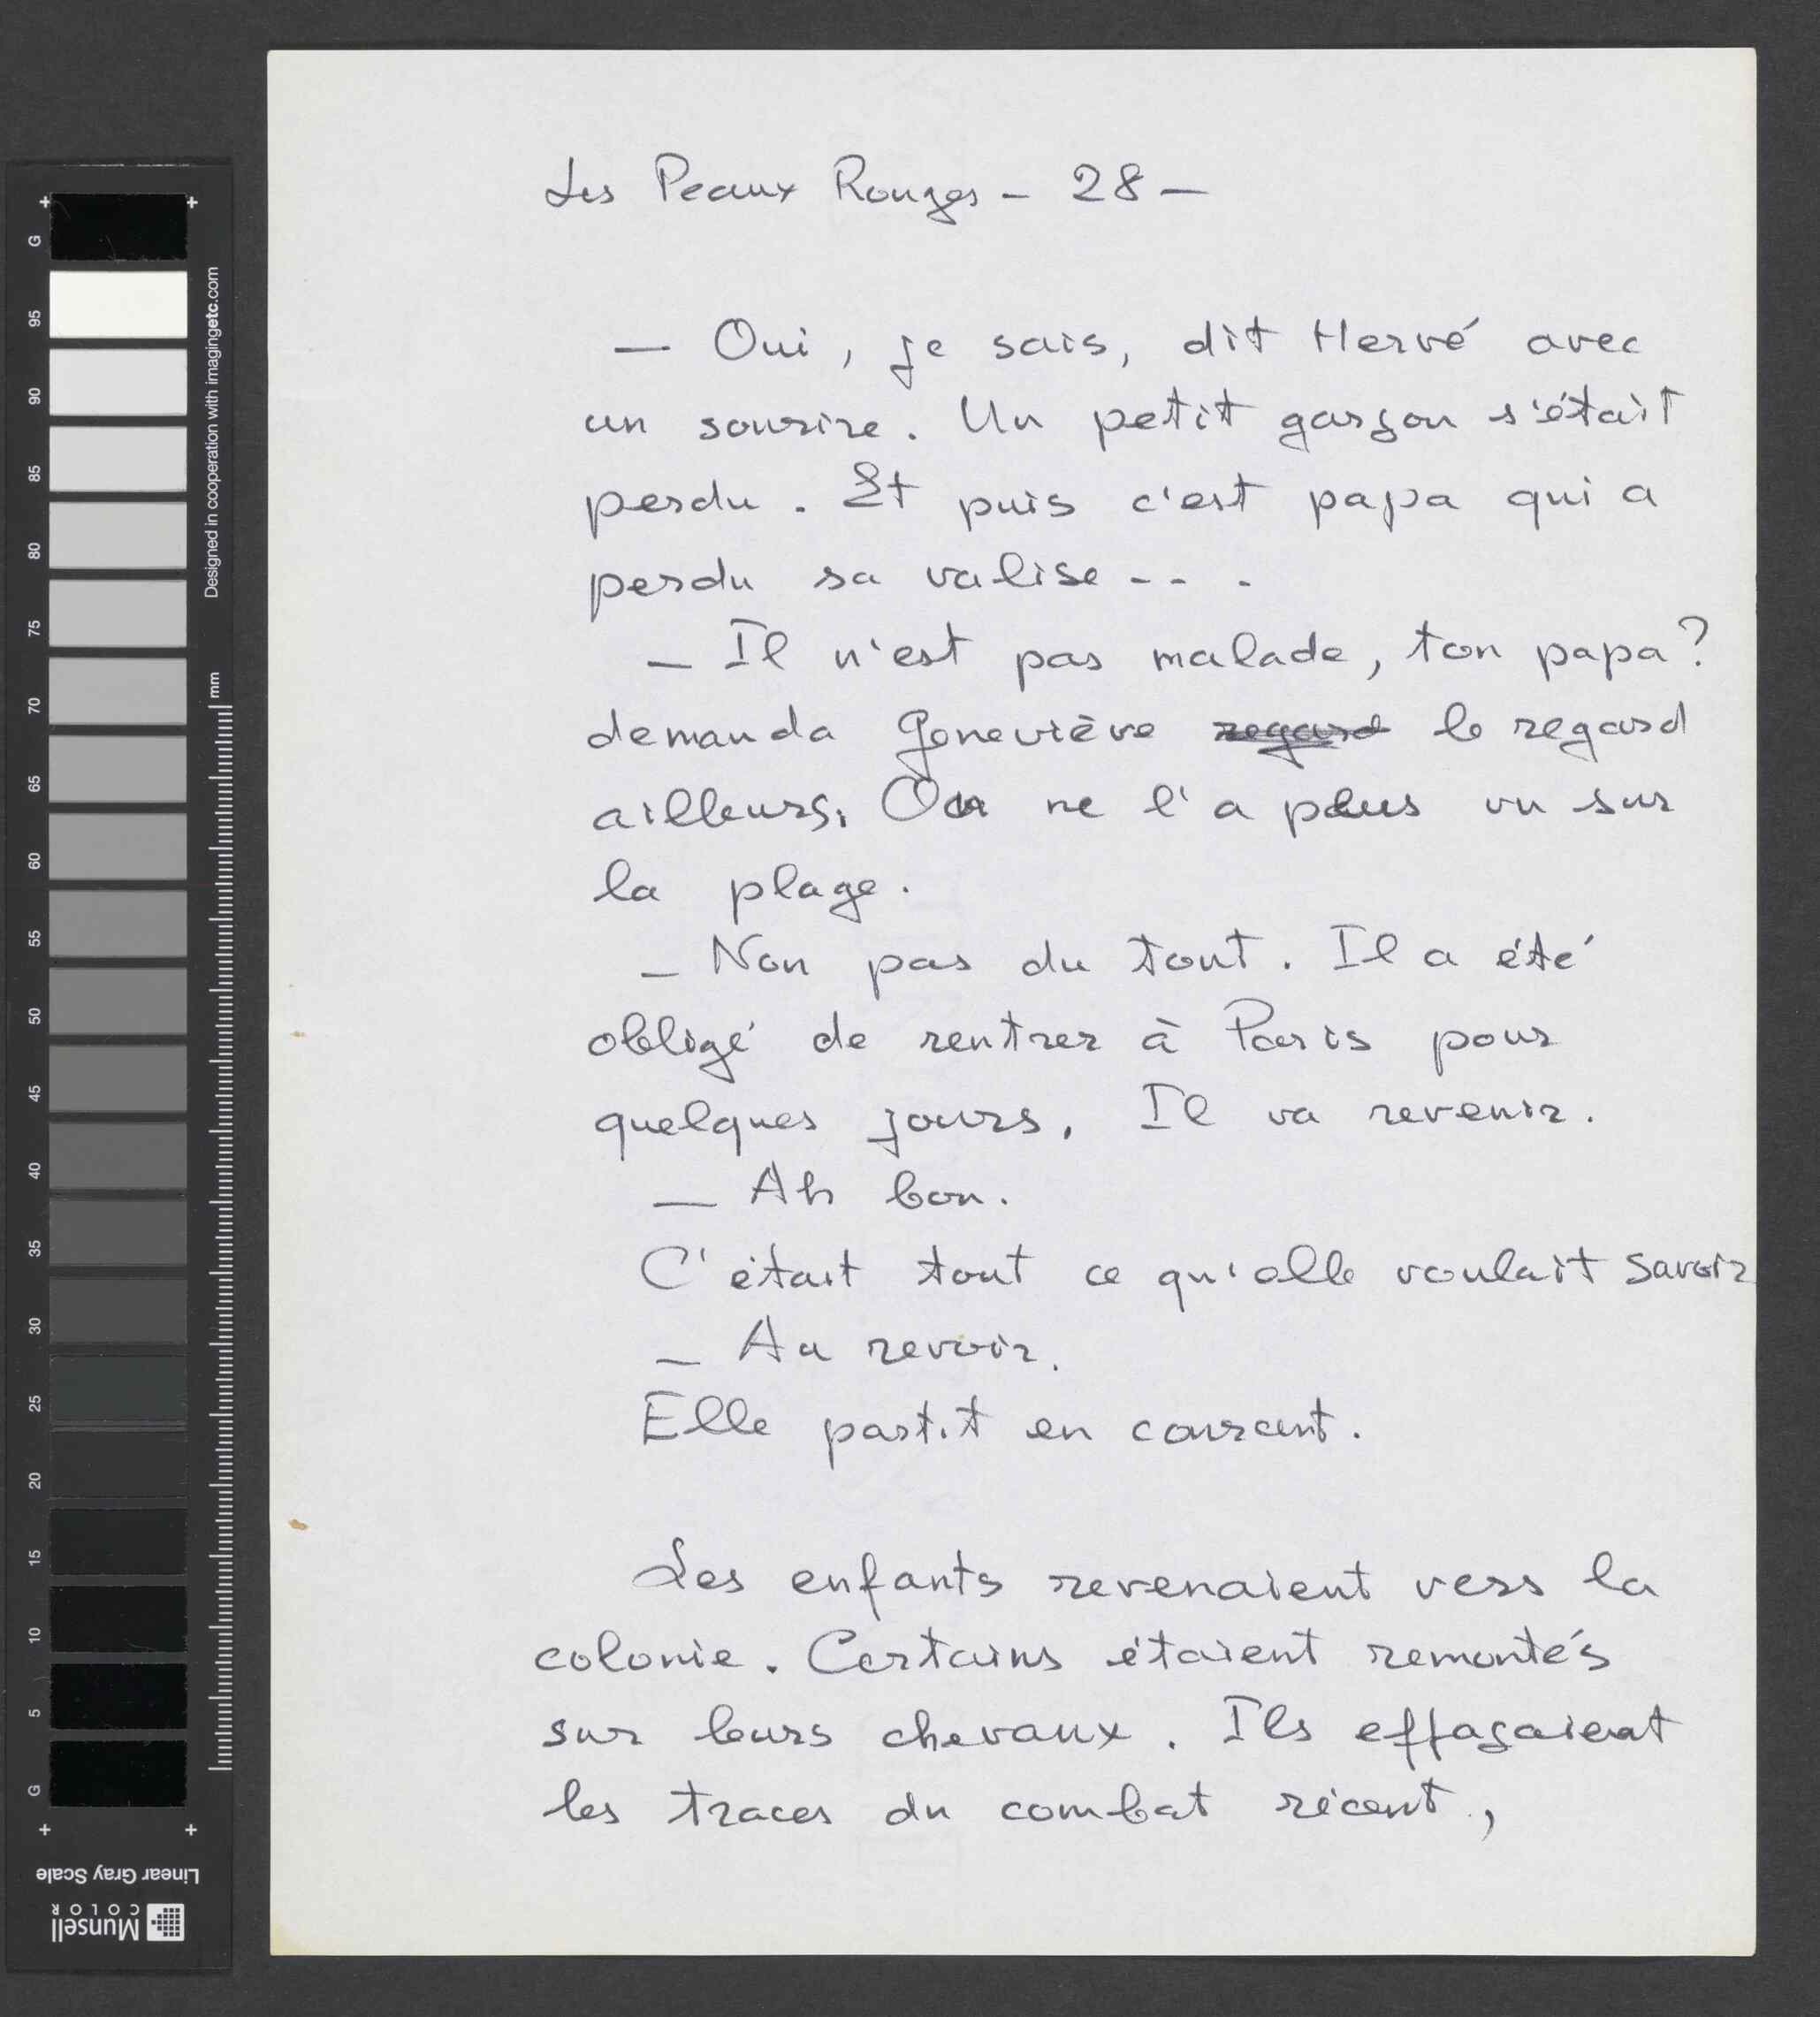 Les Peaux Rouges - 28 -
— Oui, je sais, dit Hervé avec
un sourire. Un petit garçon s'était
perdu. Et puis c'est papa qui a
perdu sa valise...
— Il n'est pas malade, ton papa?
demanda Geneviève regard le regard
ailleurs. On ne l'a plus vu sur
la plage.
— Non pas du tout. Il a été
obligé de rentrer à Paris pour
quelques jours. Il va revenir.
— Ah bon.
C'était tout ce qu'elle voulait savoir
— Au revoir.
Elle partit en courant.
Les enfants revenaient vers la
colonie. Certains étaient remontés
sur leurs chevaux. Ils effaçaient
les traces du combat récent,
G 95 90 85 80 75 70 65 60 55 50 45 40 35 30 25 20 15 10 5 G
Designed in cooperation with imagingetc.com
mm
Linear Gray Scale
Munsell
COLOR